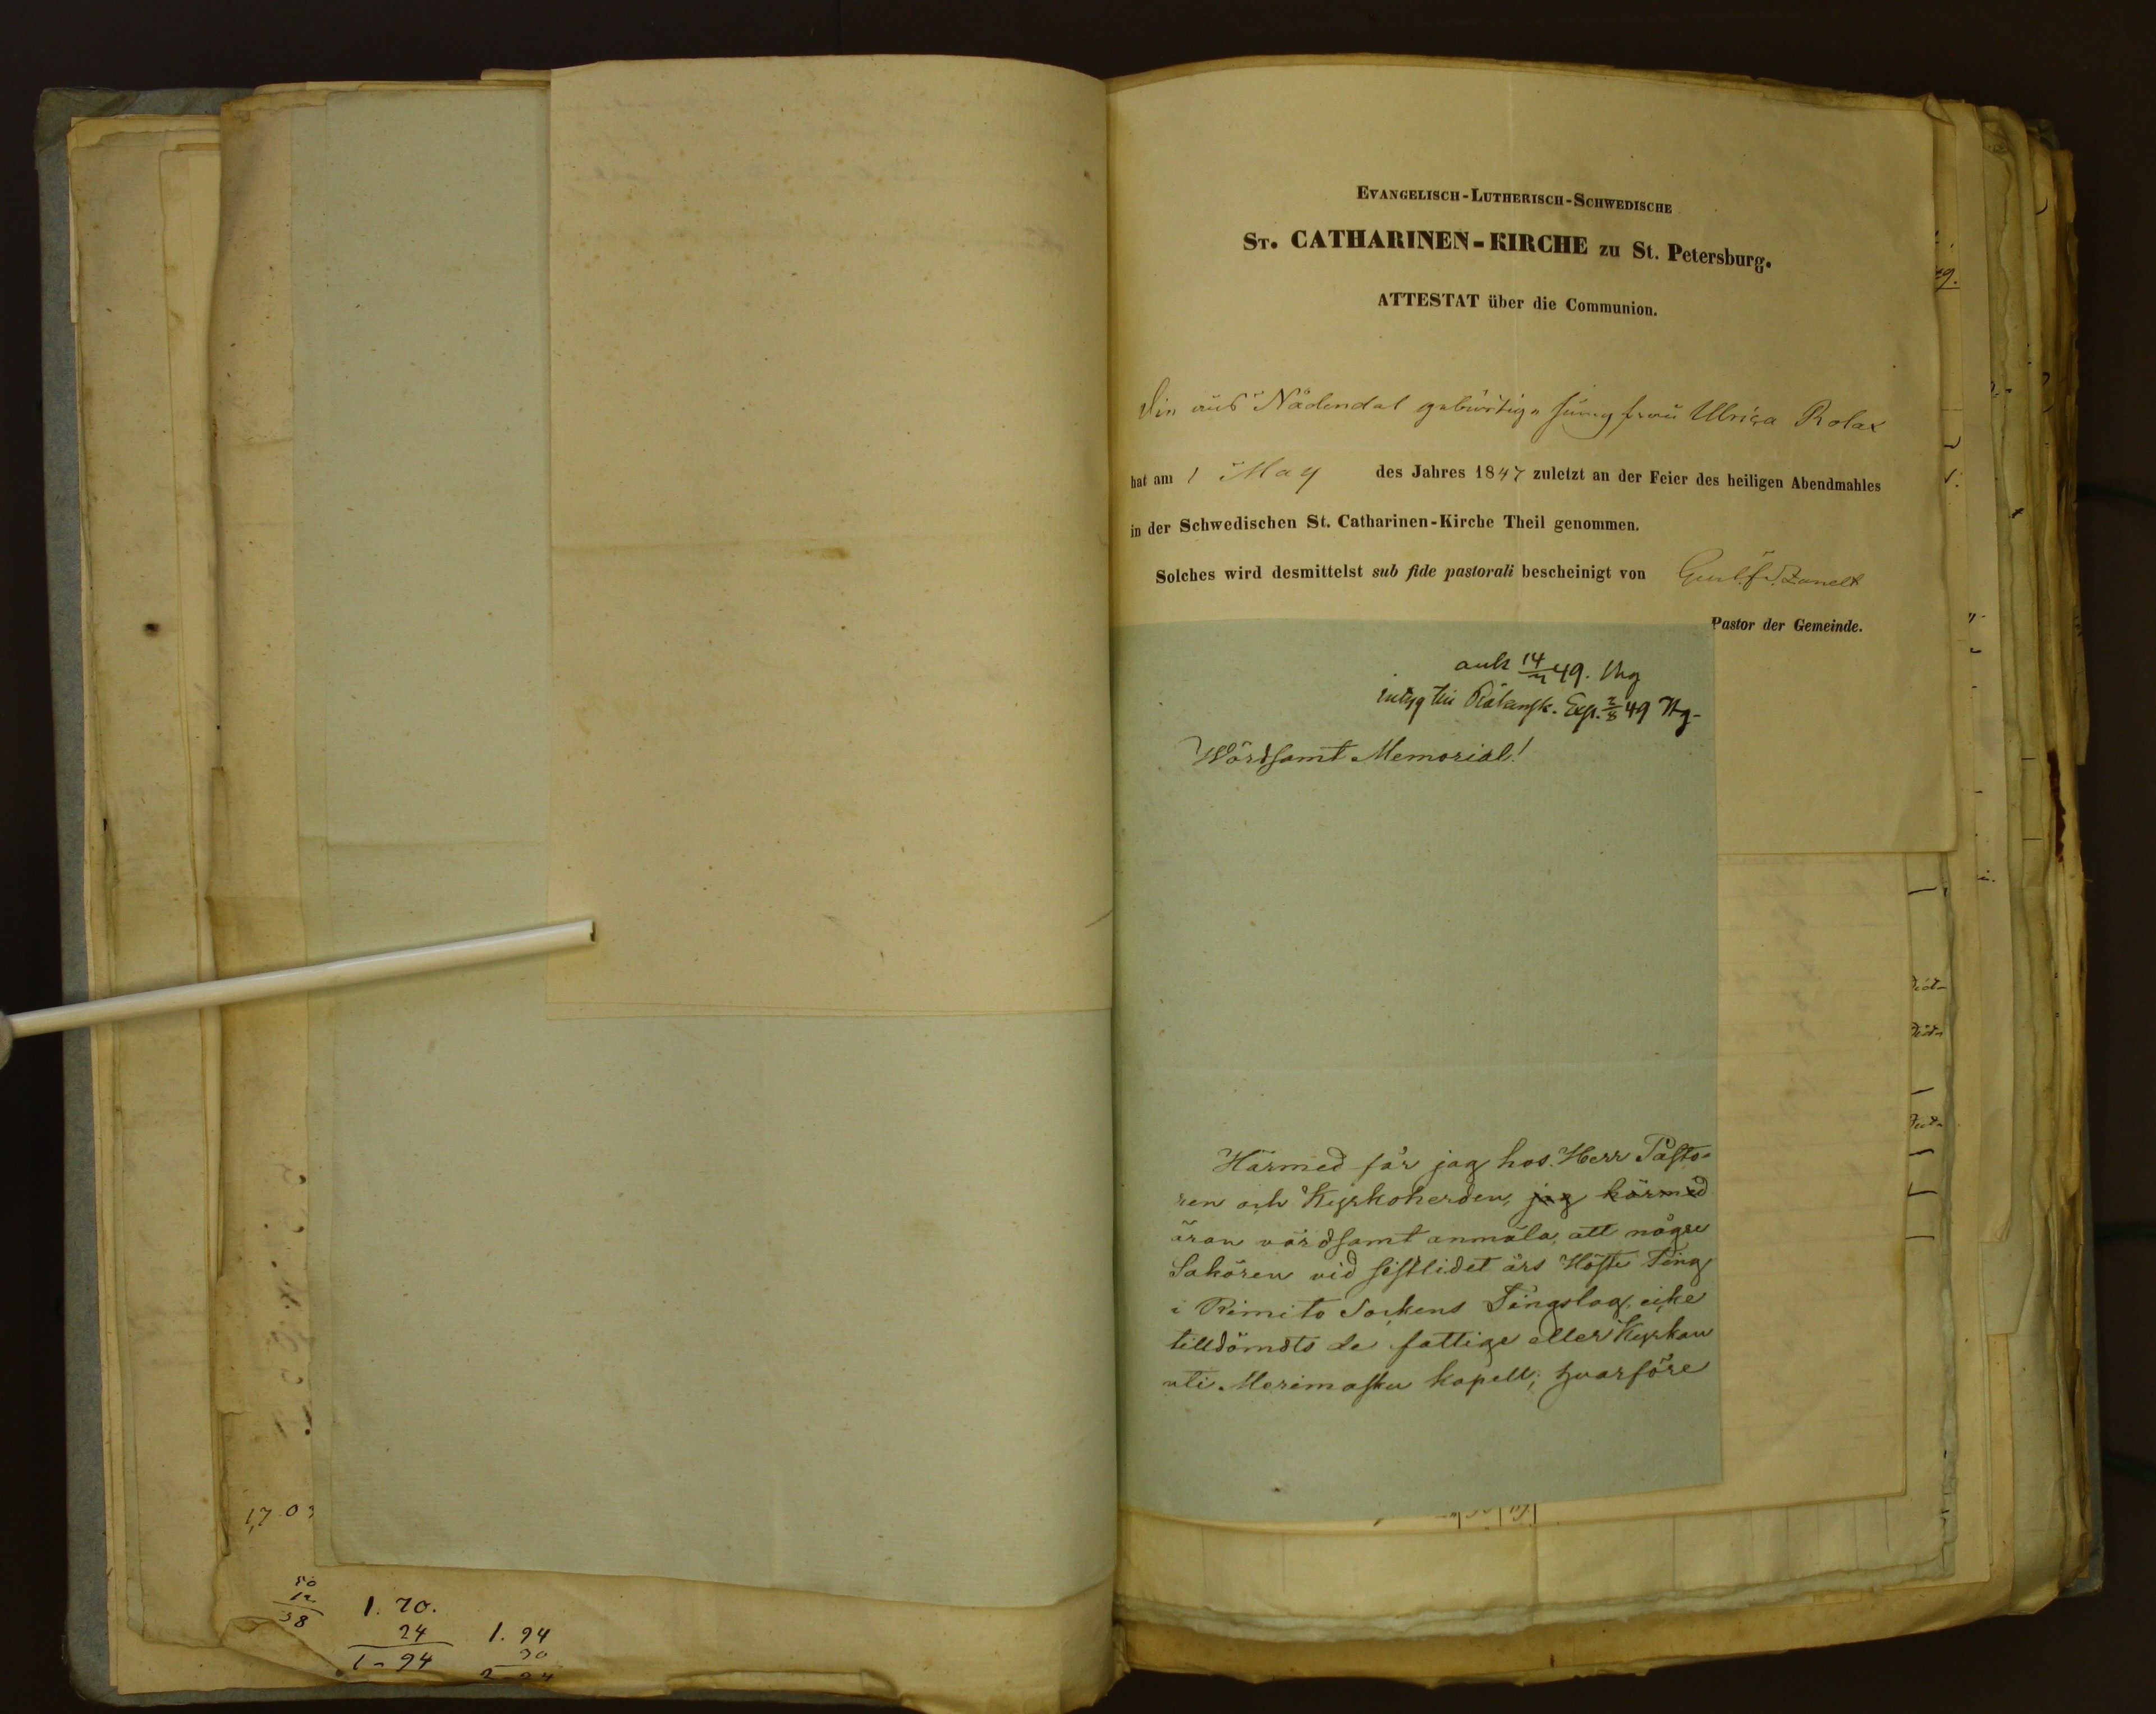 EVANGELISCH-LUTHERISCH-SCHWEDISCHE
ST. CATHARINEN-KIRCHE zu St. Petersburg.
ATTESTAT über die Communion.
Die aus Nådendal gebürtige Jungfrau Ulrica Rolax
hat am 1 May des Jahres 1847 zuletzt an der Feier des heiligen Abendmahles
in der Schwedischen St. Catharinen-Kirche Theil genommen.
Solches wird desmittelst sub fide pastorali bescheinigt von
Pastor der Gemeinde.
ank 14/7 49.
intyg till Exp. 2/8 49
Wördsamt Memorial!
Härmed får jag hos Herr Pasto-
ren och Kyrkoherden, jag härmed
äran vördsamt anmäla, att några
Sakören vid sistlidet års Höste Ting
i Rimito Sockens Tingslag, icke
tilldömdts de fattige eller Kyrkan
uti Merimasku kapell; hvarföre
17.03
50
12
38
1. 70.
24
1-94
1. 94
30
2-24